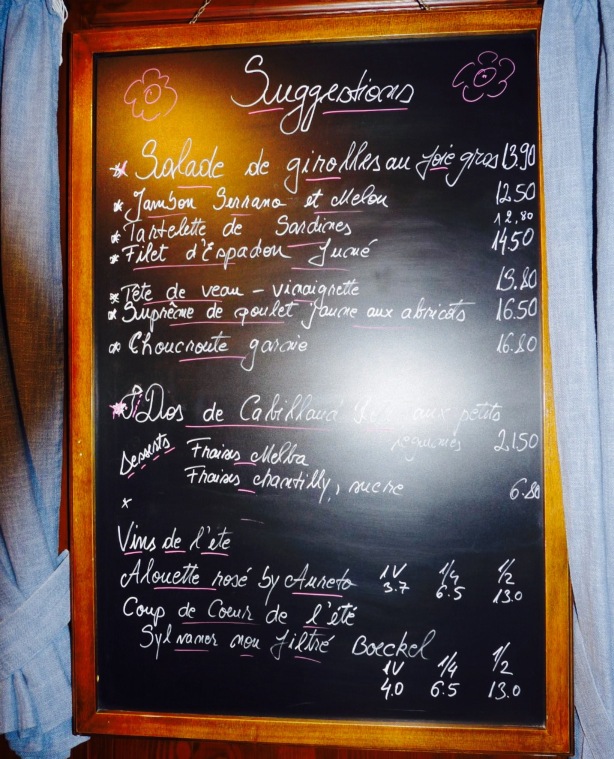 Suggestions
* Salade de girolles au foie gras 13.90
* Jambon Serrano et Melon 12.50
* Tartelette de Sardines 12.80
* Filet d'Espadon fumé 14.50
* Tête de veau - vinaigrette 15.80
* Suprême de poulet jaune aux abricots 16.50
* Choucroute garnie 16.80
* Dos de Cabillaud aux petits
légumes 21.50
Desserts Fraises Melba
Fraises chantilly, sucre 6.80
x
Vins de l'été
Alouette rosé by Aureto 1V 1/4 1/2
3.7 6.5 13.0
Coup de Coeur de l'été
Sylvaner non filtré Boeckel
1V 1/4 1/2
4.0 6.5 13.0